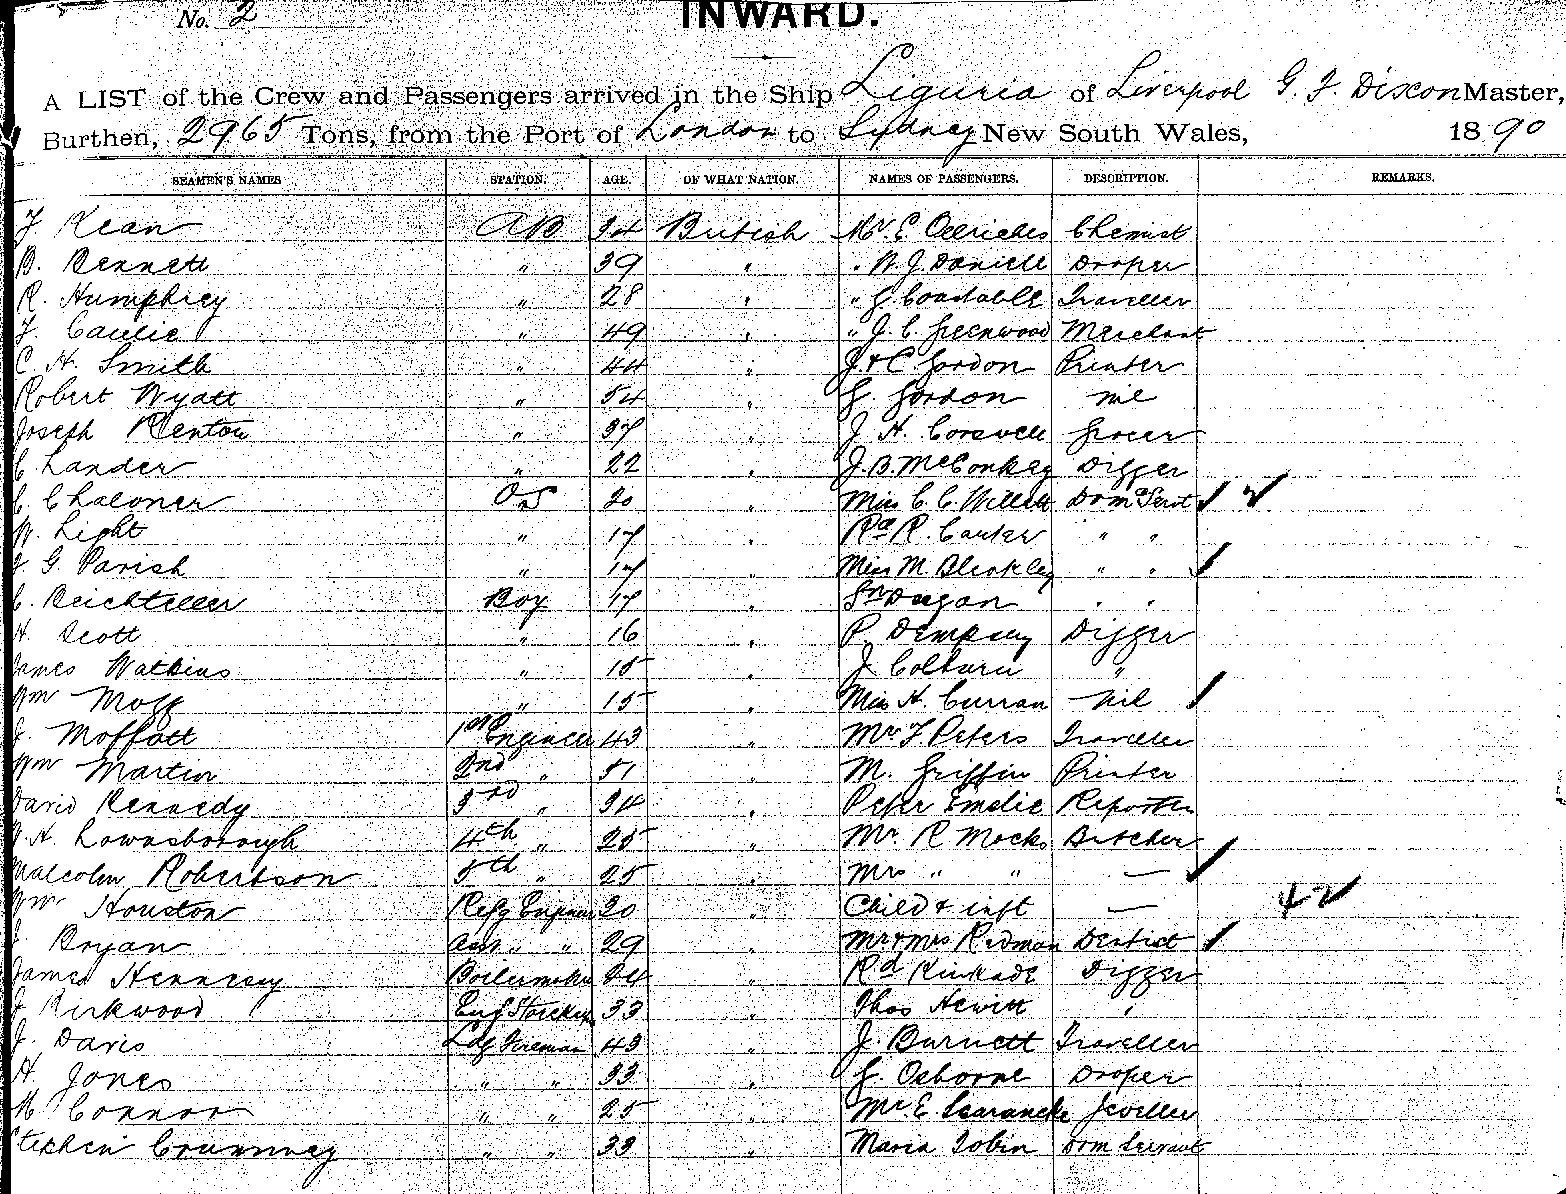 No. 2
INWARD.
A LIST of the Crew and Passengers arrived in the Ship Liguria of Liverpool G. F. Dixon Master,
Burthen, 2965 Tons, from the Port of London to Sydney New South Wales, 1890
SEAMEN'S NAMES STATION. AGE. OF WHAT NATION. NAMES OF PASSENGERS. DESCRIPTION. REMARKS.
Kean AB 34 British Mr. E Oelriches Chemist
B. Bennett " 39 " " W. J. Daniell Draper
R. Humphrey " 28 " " G Constable Traveller
" 49 " " J. C. Greenwood Merchant
C. H. Smith " 44 " J & C Gordon Printer
Robert Wyatt " 54 " G. Gordon nil
Joseph Renton " 37 " J. H. Corswell Grocer
C Lander " 22 " J. B. McConkey Digger
C Chaloner OS 20 " Miss C. C. Willett Domc Servt
W. Light " 17 " Rd R. Carter " "
J G. Parish " 17 " Miss M. Bleakley " "
C. Boy 17 " Dugan " "
H. Scott " 16 " P. Dempsey Digger
James Watkins " 15 " J Colburn "
Wm Mogg " 15 " Miss H. Curran nil
J. Moffatt 1st Engineer 43 " Mr F. Peters Traveller
Wm Martin 2nd " 51 " M. Griffin Printer
David Kennedy 3rd " 34 " Peter Emslie Reporter
W. H. Lownsborough 4th " 25 " Mr. R Mocks Butcher
Malcolm Robertson 5th " 25 " Mrs " " —
Wm Houston Refg Engineer 30 " Child & inft — 42
J Bryan Asst " " 29 " Mr & Mrs Redman Dentist
James Hennessy Boilermaker 24 " Rd Kinkade Digger
J Kirkwood Eng Storekpr 33 " Thos Hewitt "
J. Davis Ldg Fireman 43 " J. Burnett Traveller
H Jones " " 33 " G. Osborne Draper
M Connor " " 25 " Mr E Scarancke Jeweller
Stephen " " 33 " Maria Tobin Dom Servant